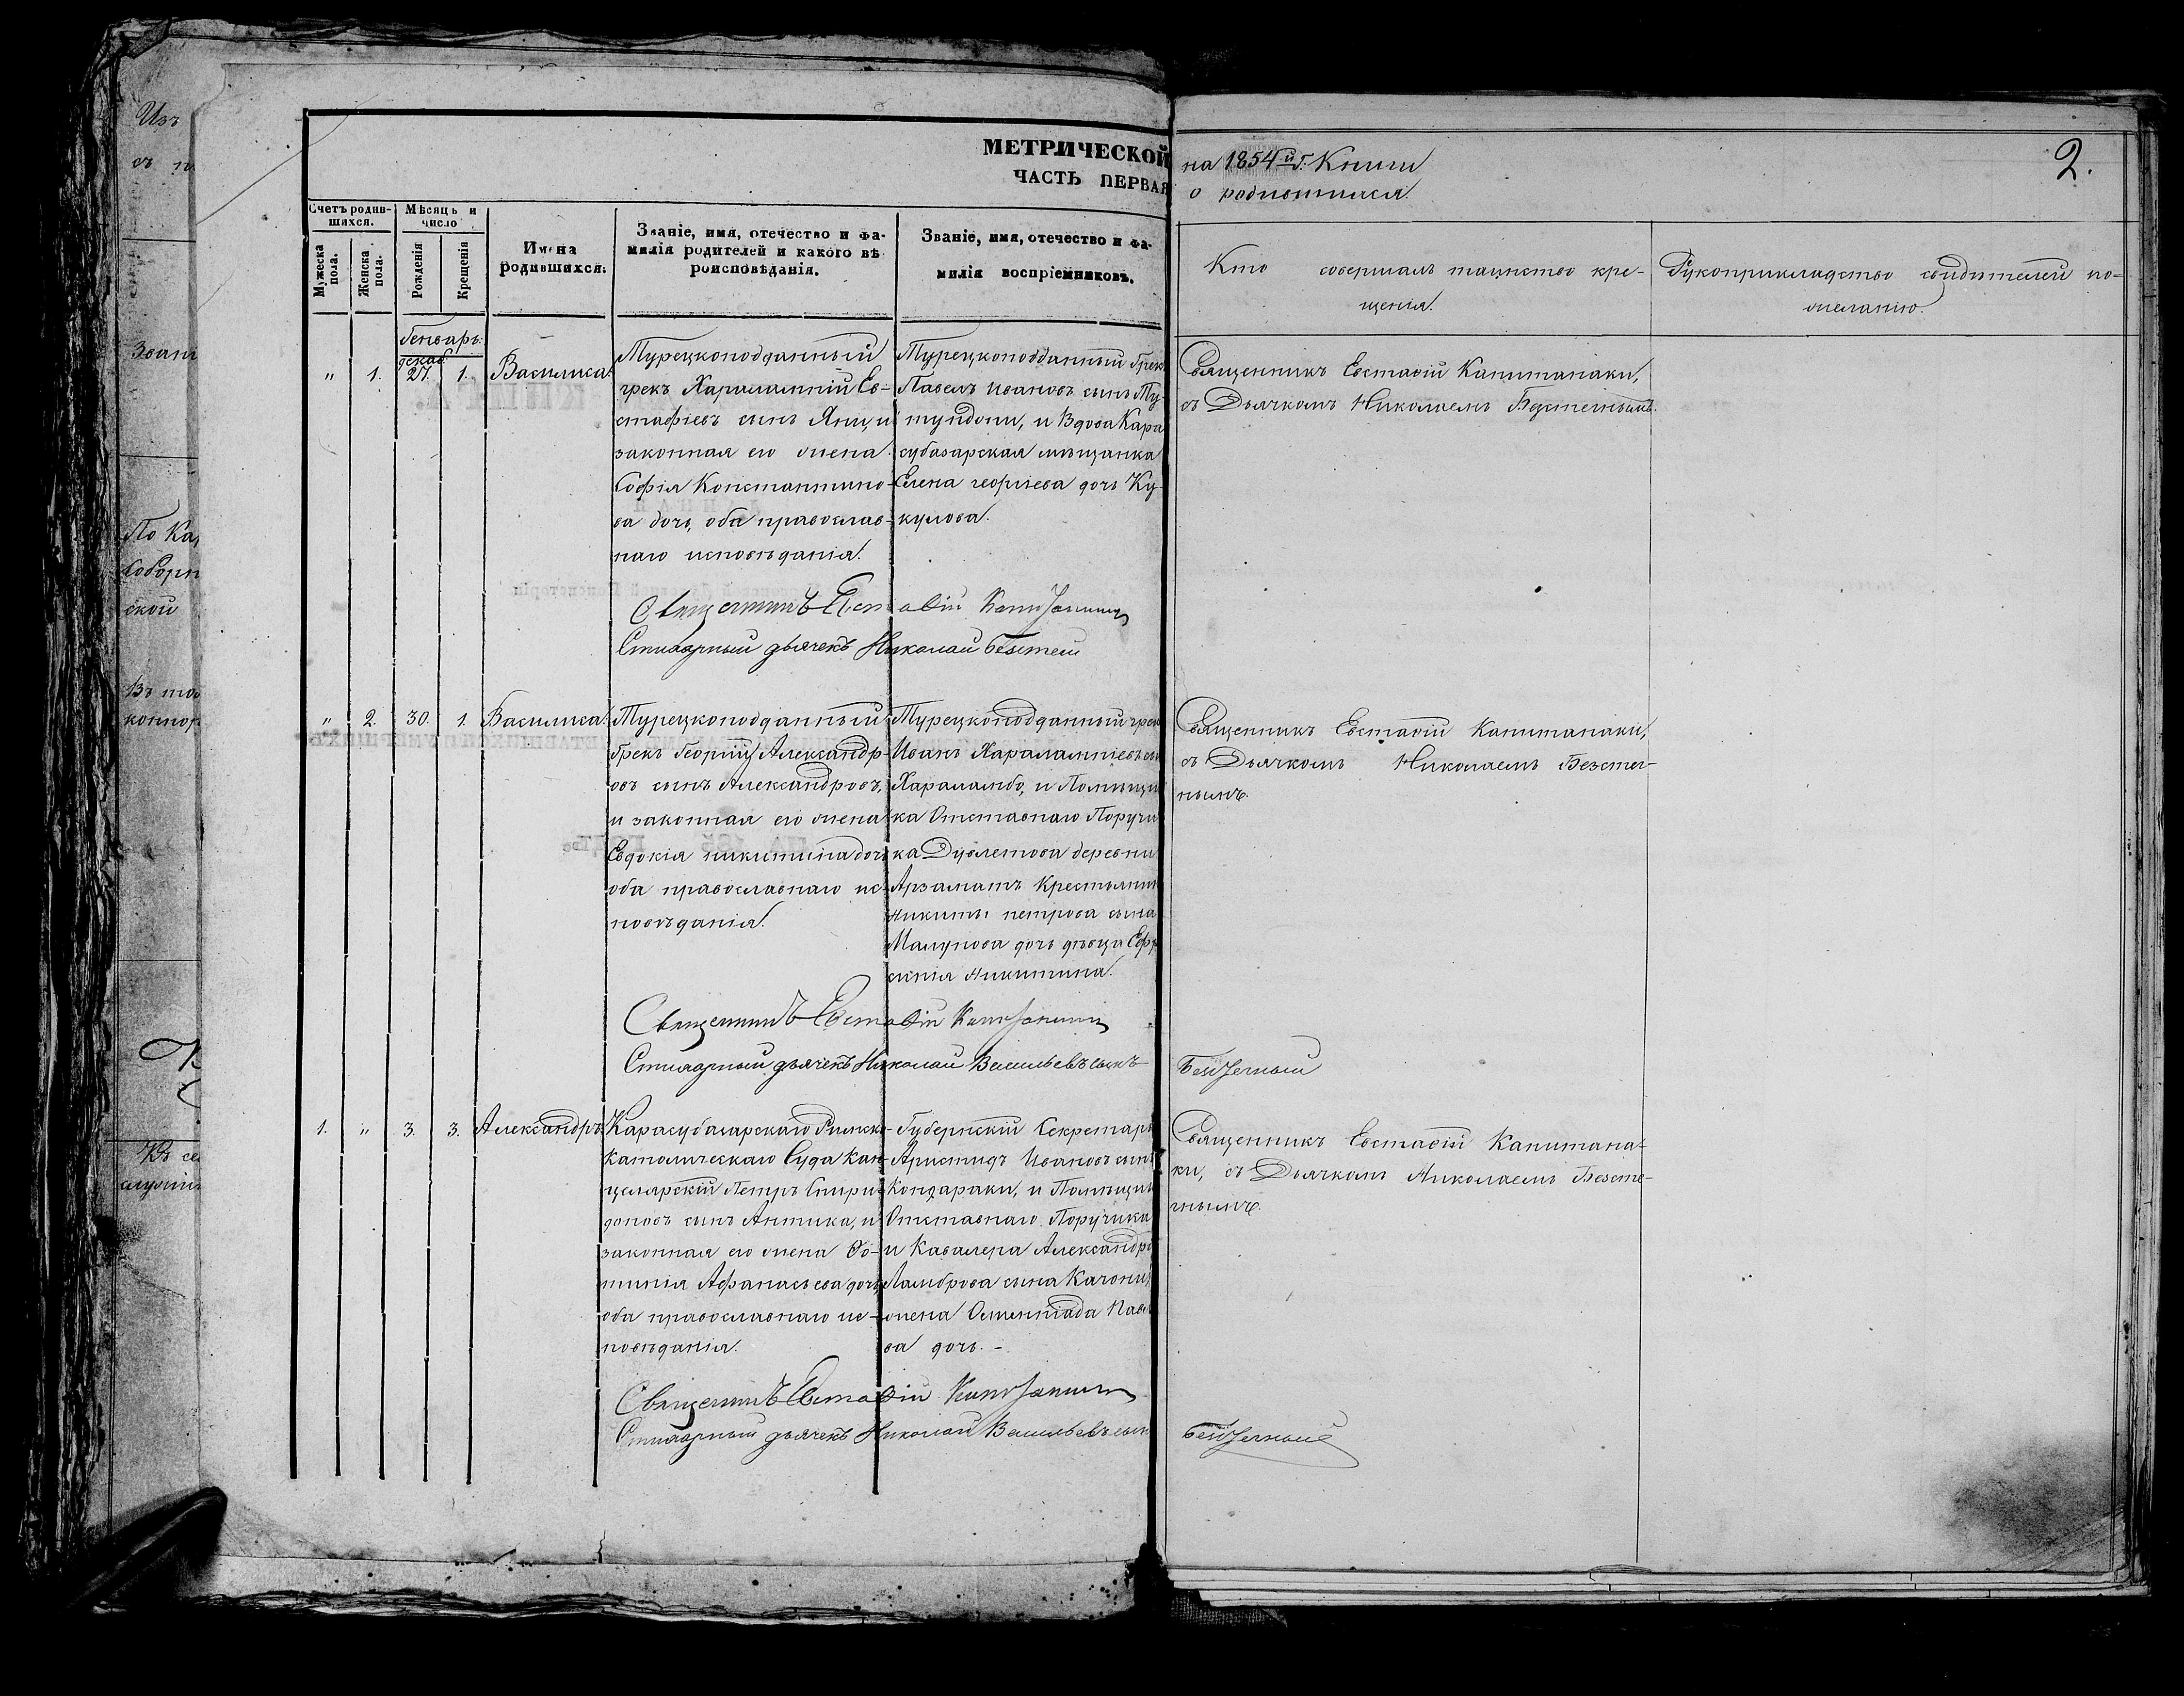 Изъ
съ
Зван
По Ка
Соборн
ской
Въ
которо
МЕТРИЧЕСКОЙ на 1854й г. Книги
2.
ЧАСТЬ ПЕРВАЯ о родившихся.
Счетъ родив-
шихся.
Мужеска
пола.
Женска
пола.
Мѣсяцъ и
число
Рожденія
Крещенія
Имена
родившихся.
Званіе, имя, отечество и фа-
милія родителей и какого вѣ
роисповѣданія.
Званіе, имя, отечество и фа-
милія воспріемниковъ.
Кто совершалъ таинство кре-
щенія.
Рукоприкладство свидѣтелей по-
желанію.
Генварь.
декаб
„ 1. 27. 1. Василиса.
Турецкоподданный
грекъ Харалампій Ев-
стафіевъ сынъ Яни, и
законная его жена
Софія Константино-
ва дочь, оба православ-
наго исповѣданія.
Турецкоподданный Грек
Павелъ Ивановъ сынъ Ту-
тундони, и Вдова Кара
субазарская мѣщанка
Елена георгіева дочь Ку-
кулова.
Священникъ Евстаѳій Капитанаки,
съ Дьячкомъ Николаемъ Безстечнымъ.
Священникъ Евстаѳій Капитанаки
Стихарный дьячекъ Николай Безстеч
„ 2. 30. 1. Василиса.
Турецкоподданный
Грекъ Георгій Александр-
овъ сынъ Александровъ,
и законная его жена
Евдокія никитина дочь
оба православнаго ис-
повѣданія.
Турецкоподданный грек
Иванъ Харалампіевъ сы
Хараламбо, и Помѣщи
ка Отставнаго Поручи
ка Дувлетова деревни
Арзаматъ Крестьянин
Никиты петрова сына
Малунова дочь дѣвица Ефр
синія Никитина.
Священникъ Евстаѳій Капитанаки,
съ Дьячкомъ Николаемъ Безстеч-
нымъ.
Священникъ Евстаѳій Капитанаки
Стихарный дьячекъ Николай Васильевъ сынъ Безстечный
1. „ 3. 3. Александръ.
Карасубазарскаго Римско-
католическаго Суда кан
целярскій Петръ Спири-
доновъ сынъ Антика, и
законная его жена Фо-
тинія Афанасьева дочь
оба православнаго ис-
повѣданія.
Губернскій Секретарь
Аристидъ Ивановъ сынъ
Кондараки, и Помѣщик
Отставнаго Поручика
и Кавалера Александр
Ламброва сына Качони
жена Олимпіада Павл
ва дочь. –
Священникъ Евстаѳій Капитана-
ки, съ Дьячкомъ Николаемъ Безсте-
чнымъ.
Священникъ Евстаѳій Капитанаки
Стихарный дьячекъ Николай Васильевъ сын Безстечный